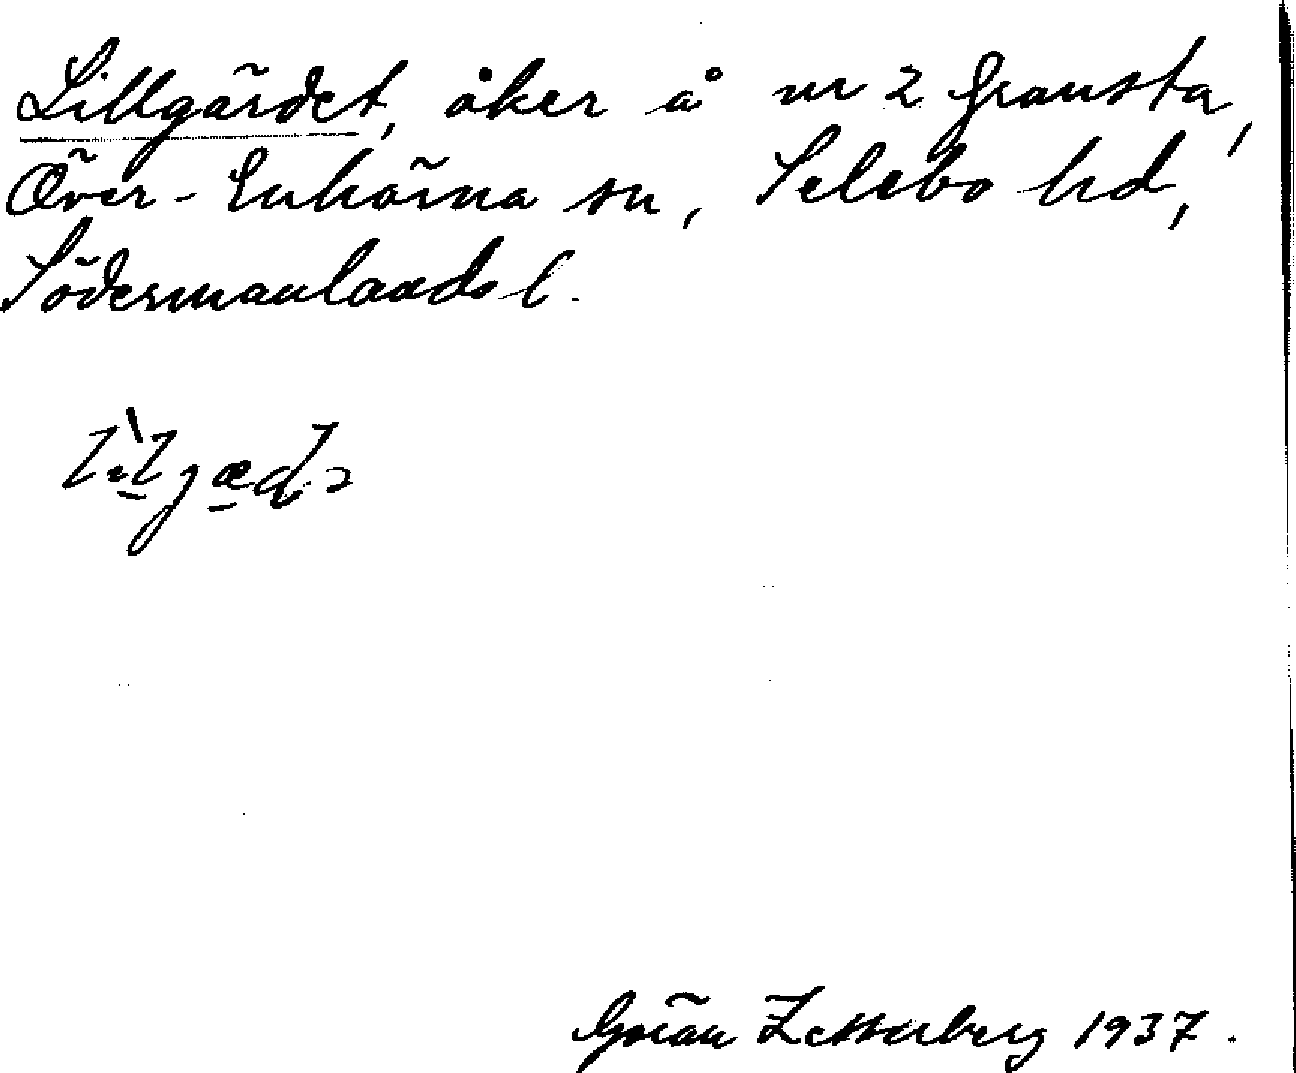 Lillgärdet, åker å nr 2 Gransta,
Över-Enhörna sn, Selebo hd,
Södermanlands l.
Göran Zetterberg 1937.